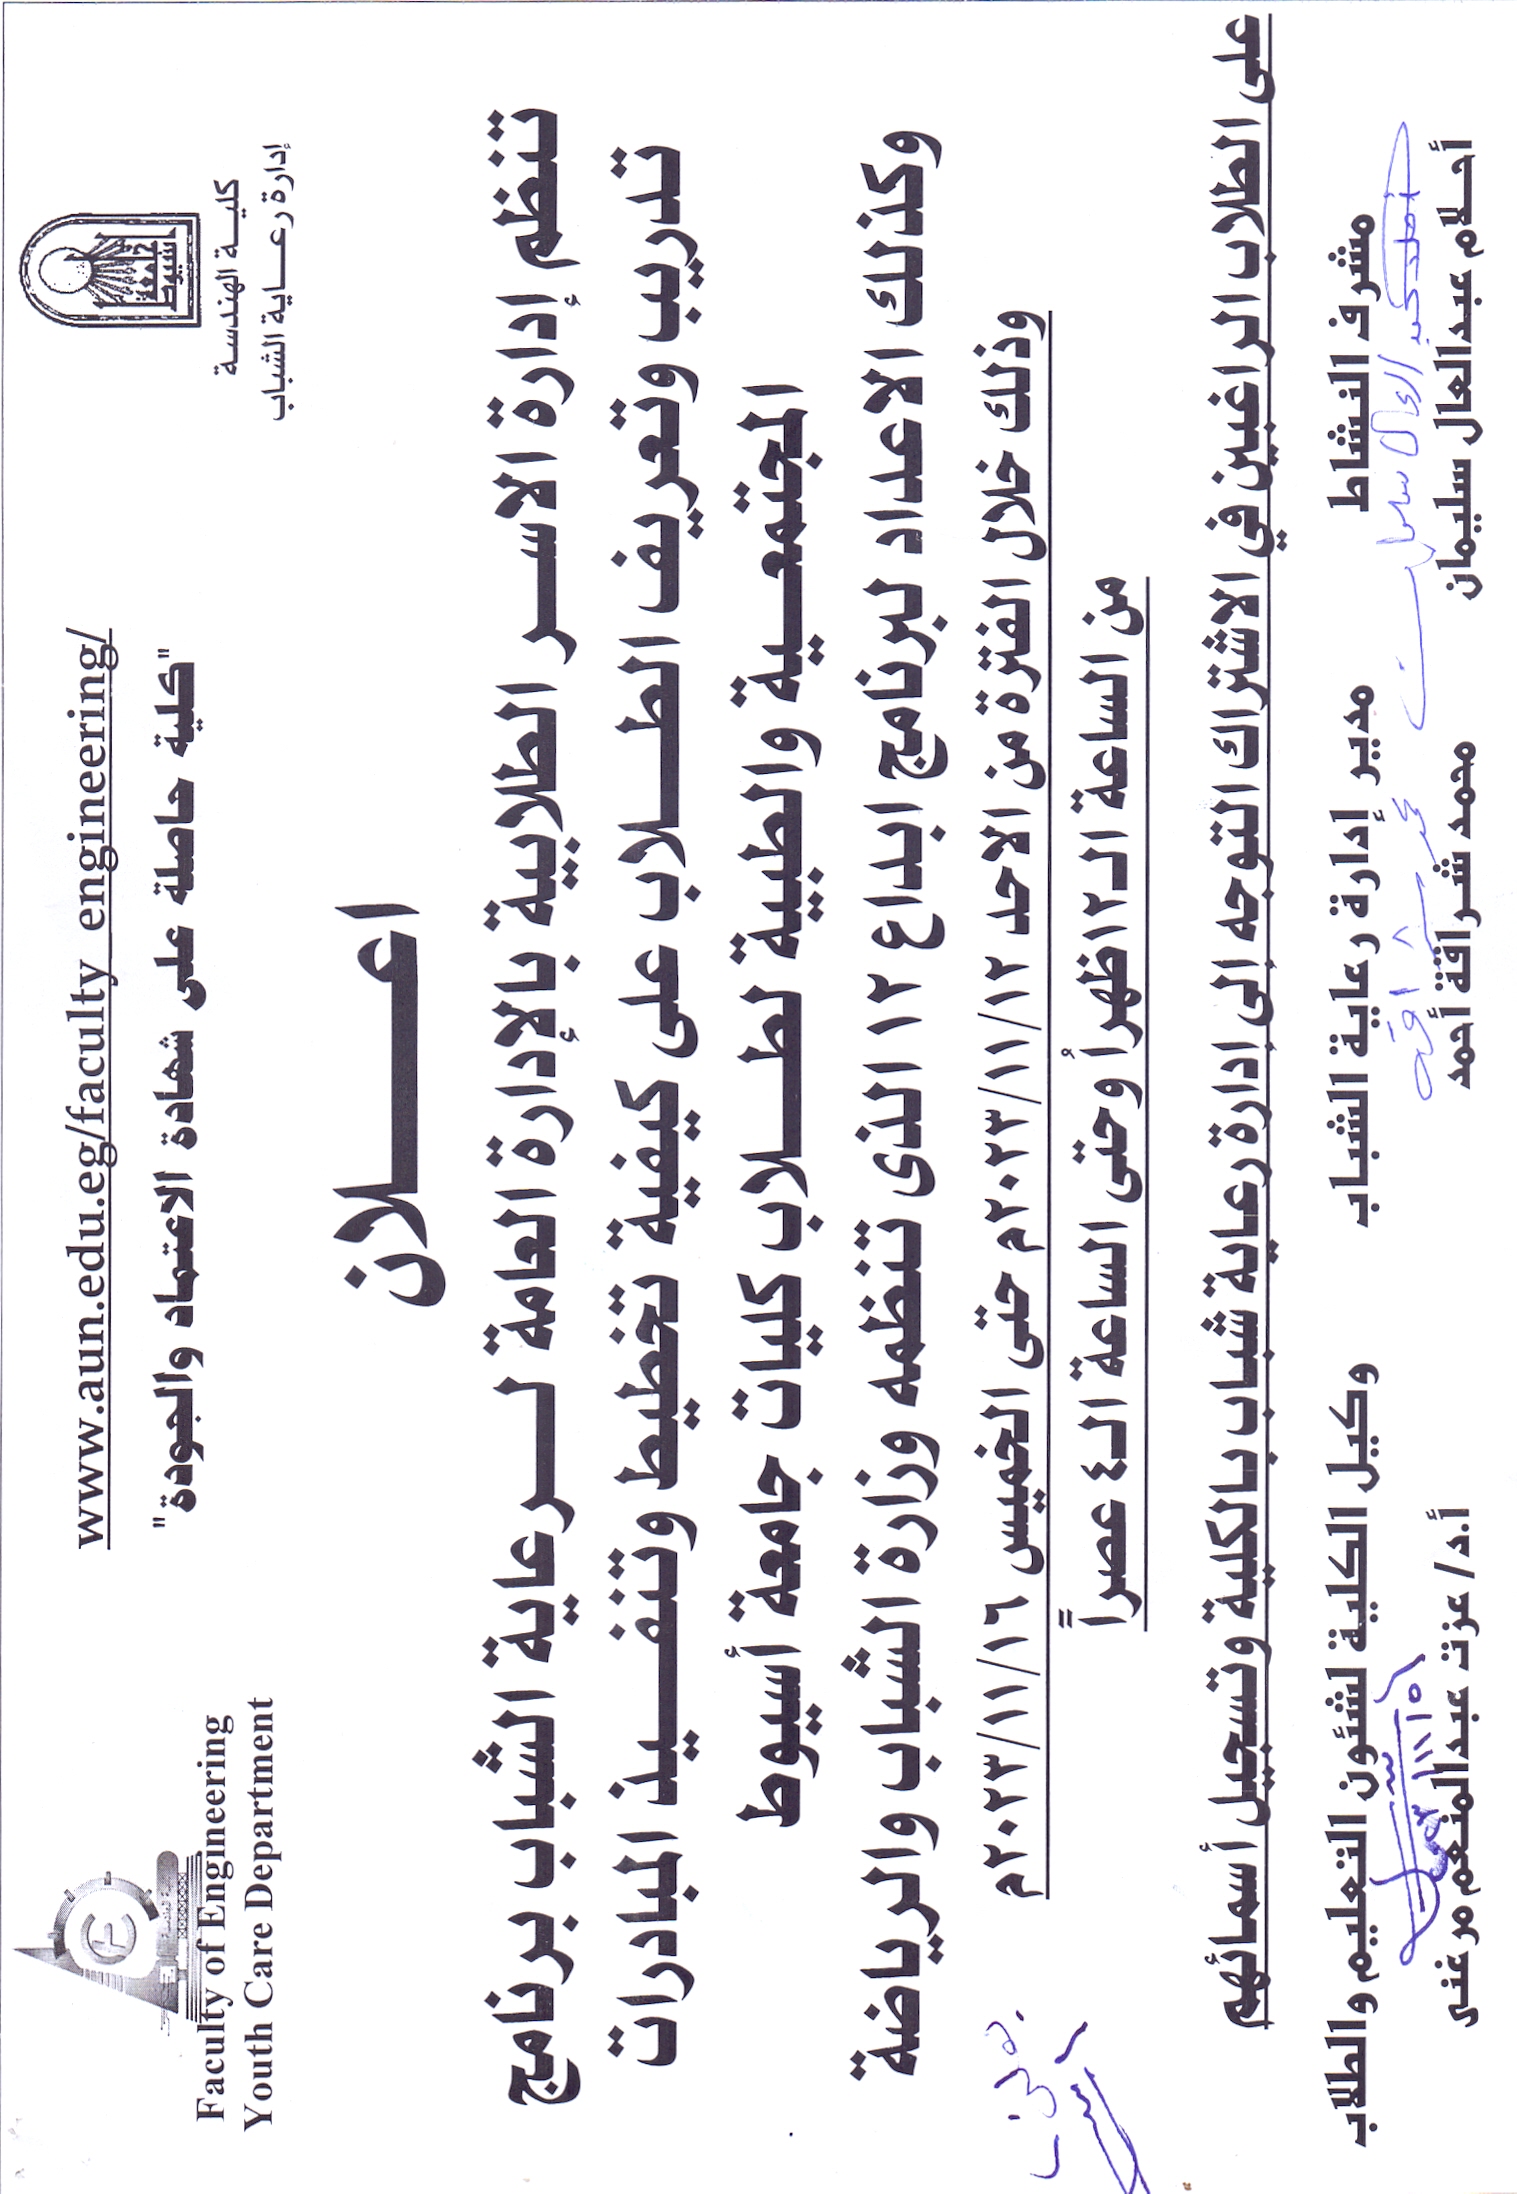 كليـــة الهندسـة
إدارة رعـــاية الشباب
جامعة
اسيوط
www.aun.edu.eg/faculty_engineering/
"كلية حاصلة على شهادة الاعتماد والجودة"
Faculty of Engineering
Youth Care Department
اعـــــلان
تنظم إدارة الاســر الطلابية بالإدارة العامة لــرعاية الشباب برنامج
تدريب وتعريف الطـــلاب على كيفية تخطيط وتنفـــيذ المبادرات
المجتمعــية والطبية لطـــلاب كليات جامعة أسيوط
وكذلك الاعداد لبرنامج ابداع ١٢ الذى تنظمه وزارة الشباب والرياضة
وذلك خلال الفترة من الاحد ٢٠٢٣/١١/١٢م حتى الخميس ٢٠٢٣/١١/١٦م
من الساعة الـ١٢ ظهراً وحتى الساعة الـ٤ عصراً
على الطلاب الراغبين في الاشتراك التوجه الى ادارة رعاية شباب بالكلية وتسجيل أسمائهم
مشرف النشاط
مدير إدارة رعاية الشباب
وكيل الكلية لشئون التعليم والطلاب
أحلام عبدالعال سليمان
محمد شراقة أحمد
أ.د/ عزت عبدالمنعم مرغنى